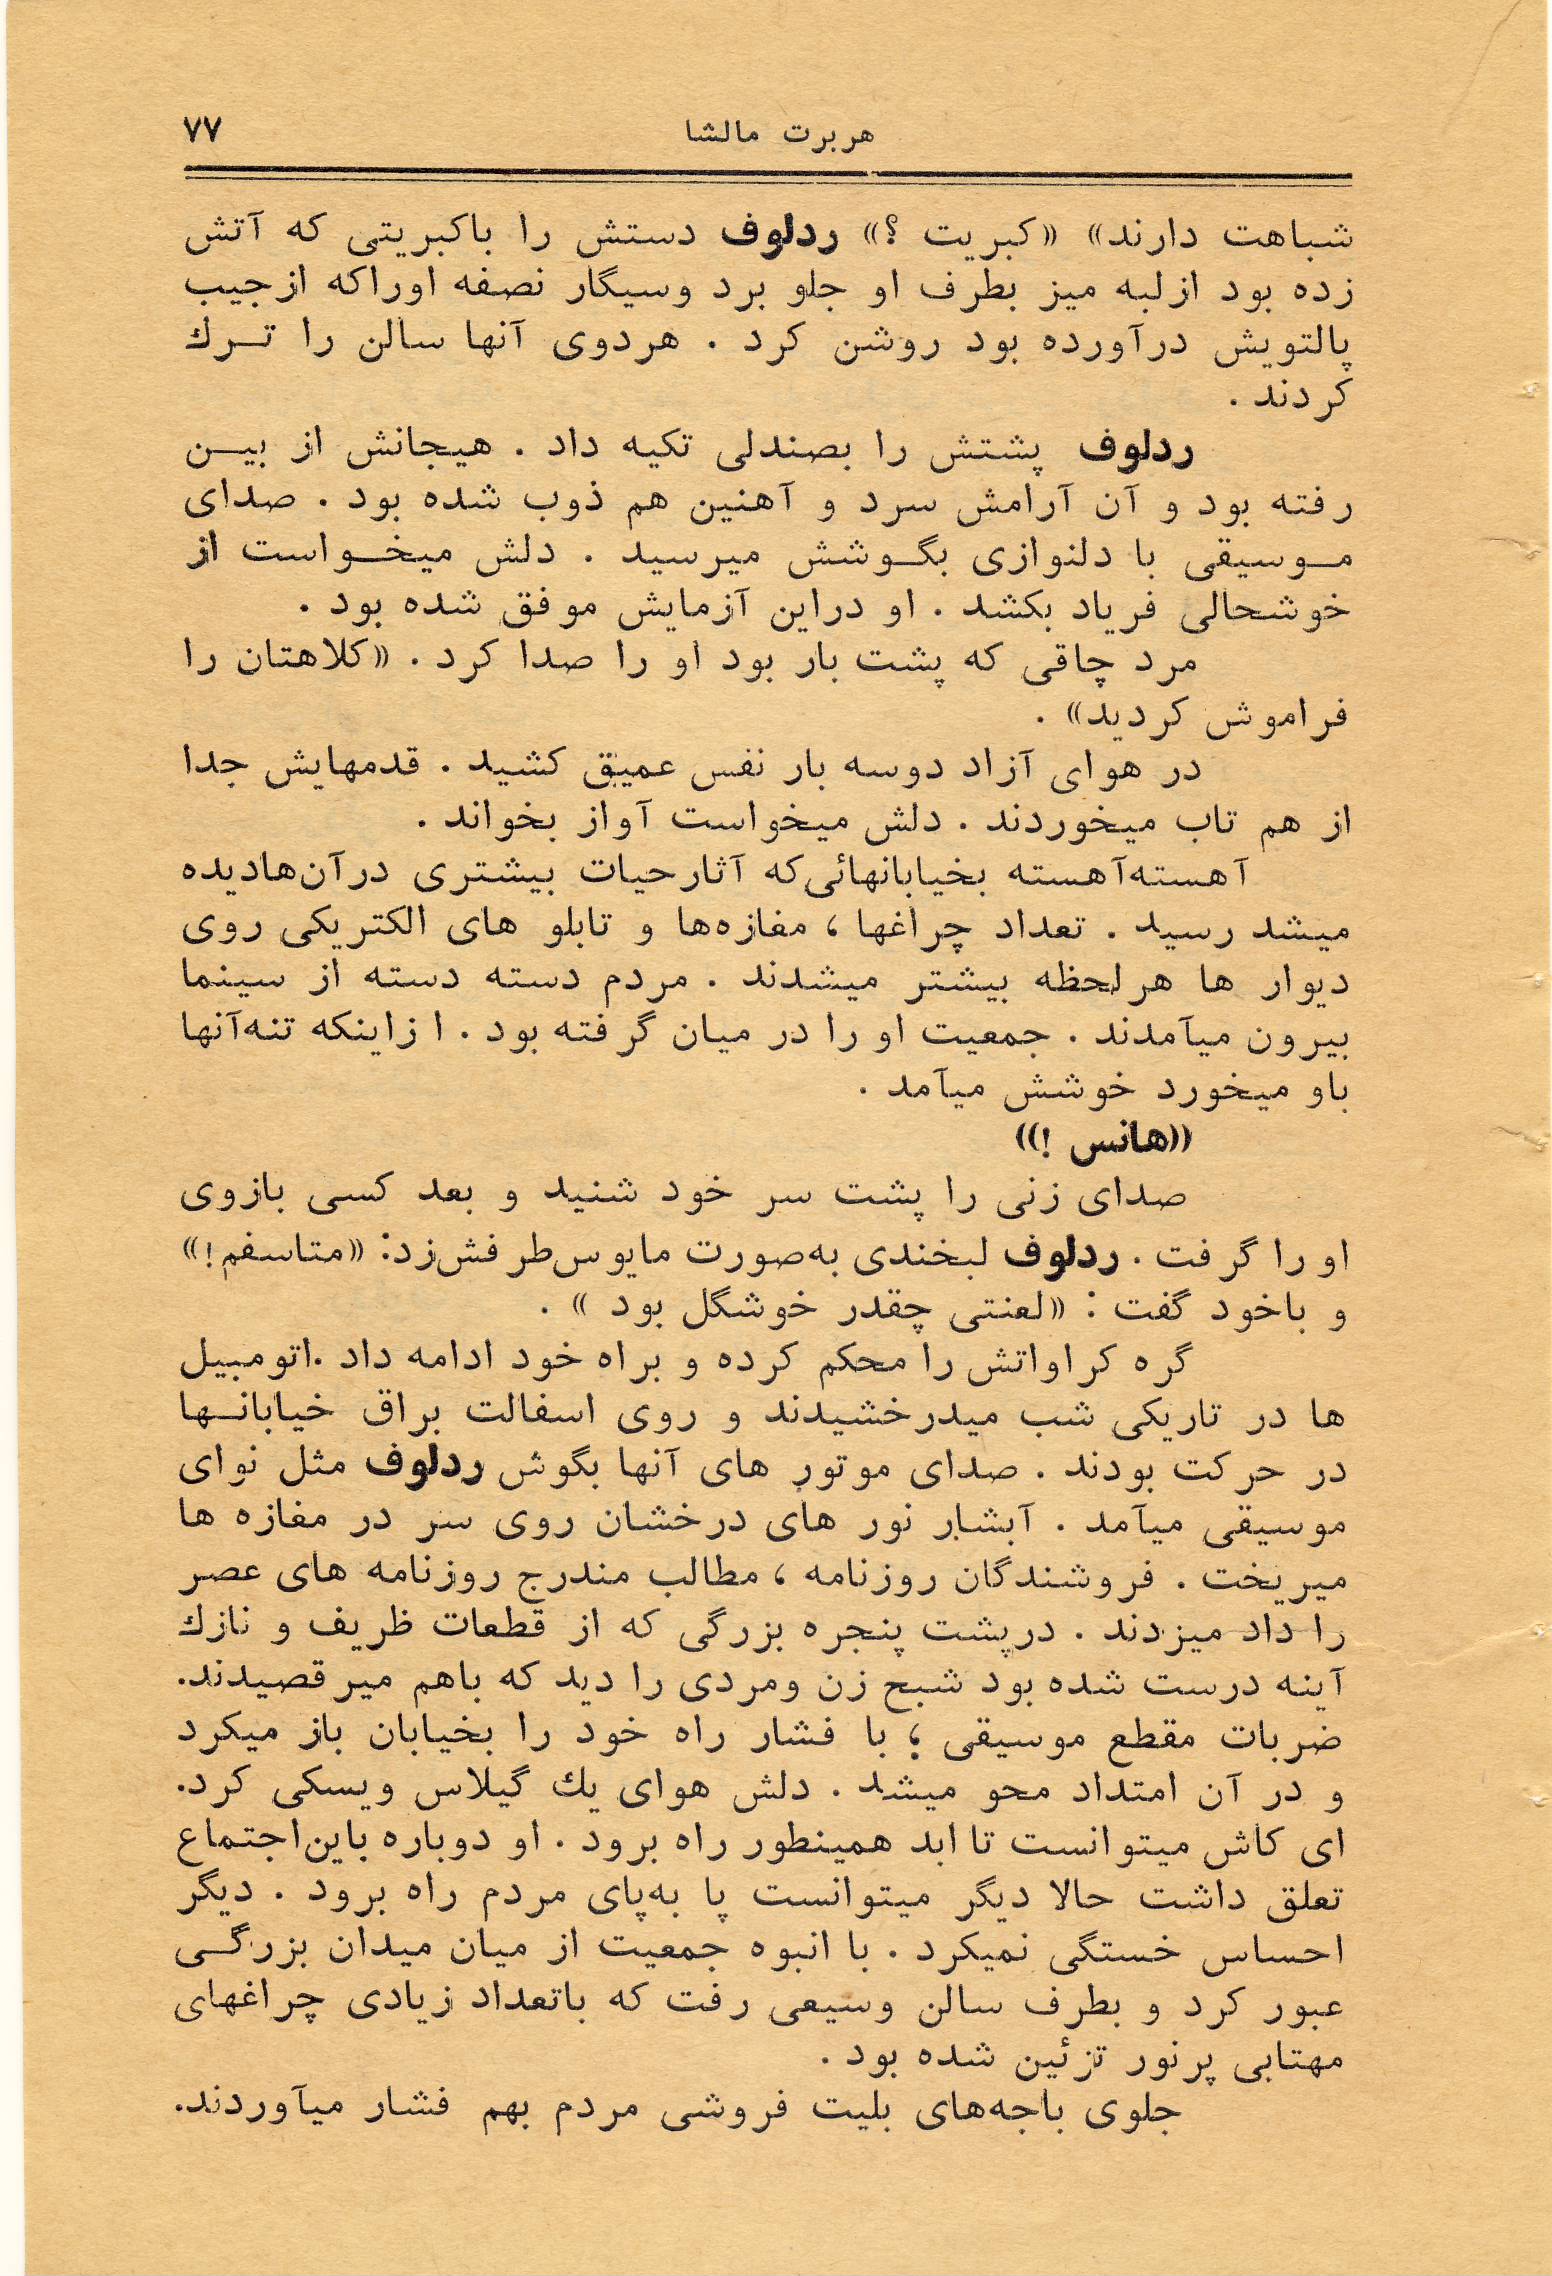 هربرت مالشا ۷۷
شباهت دارند» «کبریت ؟» ردلوف دستش را باکبریتی که آتش
زده بود ازلبه میز بطرف او جلو برد وسیگار نصفه اوراکه ازجیب
پالتویش درآورده بود روشن کرد . هردوی آنها سالن را تـرك
کردند .
ردلوف پشتش را بصندلی تکیه داد . هیجانش از بیـن
رفته بود و آن آرامش سرد و آهنین هم ذوب شده بود . صدای
مـوسیقی با دلنوازی بگـوشش میرسید . دلش میخـواست از
خوشحالی فریاد بکشد . او دراین آزمایش موفق شده بود .
مرد چاقی که پشت بار بود او را صدا کرد . «کلاهتان را
فراموش کردید» .
در هوای آزاد دوسه بار نفس عمیق کشید . قدمهایش جدا
از هم تاب میخوردند . دلش میخواست آواز بخواند .
آهسته‌آهسته بخیابانهائی‌که آثارحیات بیشتری درآن‌هادیده
میشد رسید . تعداد چراغها ، مغازه‌ها و تابلو های الکتریکی روی
دیوار ها هرلحظه بیشتر میشدند . مردم دسته دسته از سینما
بیرون میآمدند . جمعیت او را در میان گرفته بود . ا زاینکه تنه‌آنها
باو میخورد خوشش میآمد .
«هانس !»
صدای زنی را پشت سر خود شنید و بعد کسی بازوی
او را گرفت . ردلوف لبخندی به‌صورت مایوس‌طرفش‌زد: «متاسفم!»
و باخود گفت : «لعنتی چقدر خوشگل بود » .
گره کراواتش را محکم کرده و براه خود ادامه داد .اتومبیل
ها در تاریکی شب میدرخشیدند و روی اسفالت براق خیابانـها
در حرکت بودند . صدای موتور های آنها بگوش ردلوف مثل نوای
موسیقی میآمد . آبشار نور های درخشان روی سر در مغازه ها
میریخت . فروشندگان روزنامه ، مطالب مندرج روزنامه های عصر
را داد میزدند . درپشت پنجره بزرگی که از قطعات ظریف و نازك
آینه درست شده بود شبح زن ومردی را دید که باهم میرقصیدند.
ضربات مقطع موسیقی ؛ با فشار راه خود را بخیابان باز میکرد
و در آن امتداد محو میشد . دلش هوای یك گیلاس ویسکی کرد.
ای کاش میتوانست تا ابد همینطور راه برود . او دوباره باین‌اجتماع
تعلق داشت حالا دیگر میتوانست پا به‌پای مردم راه برود . دیگر
احساس خستگی نمیکرد . با انبوه جمعیت از میان میدان بزرگـی
عبور کرد و بطرف سالن وسیعی رفت که باتعداد زیادی چراغهای
مهتابی پرنور تزئین شده بود .
جلوی باجه‌های بلیت فروشی مردم بهم فشار میآوردند.